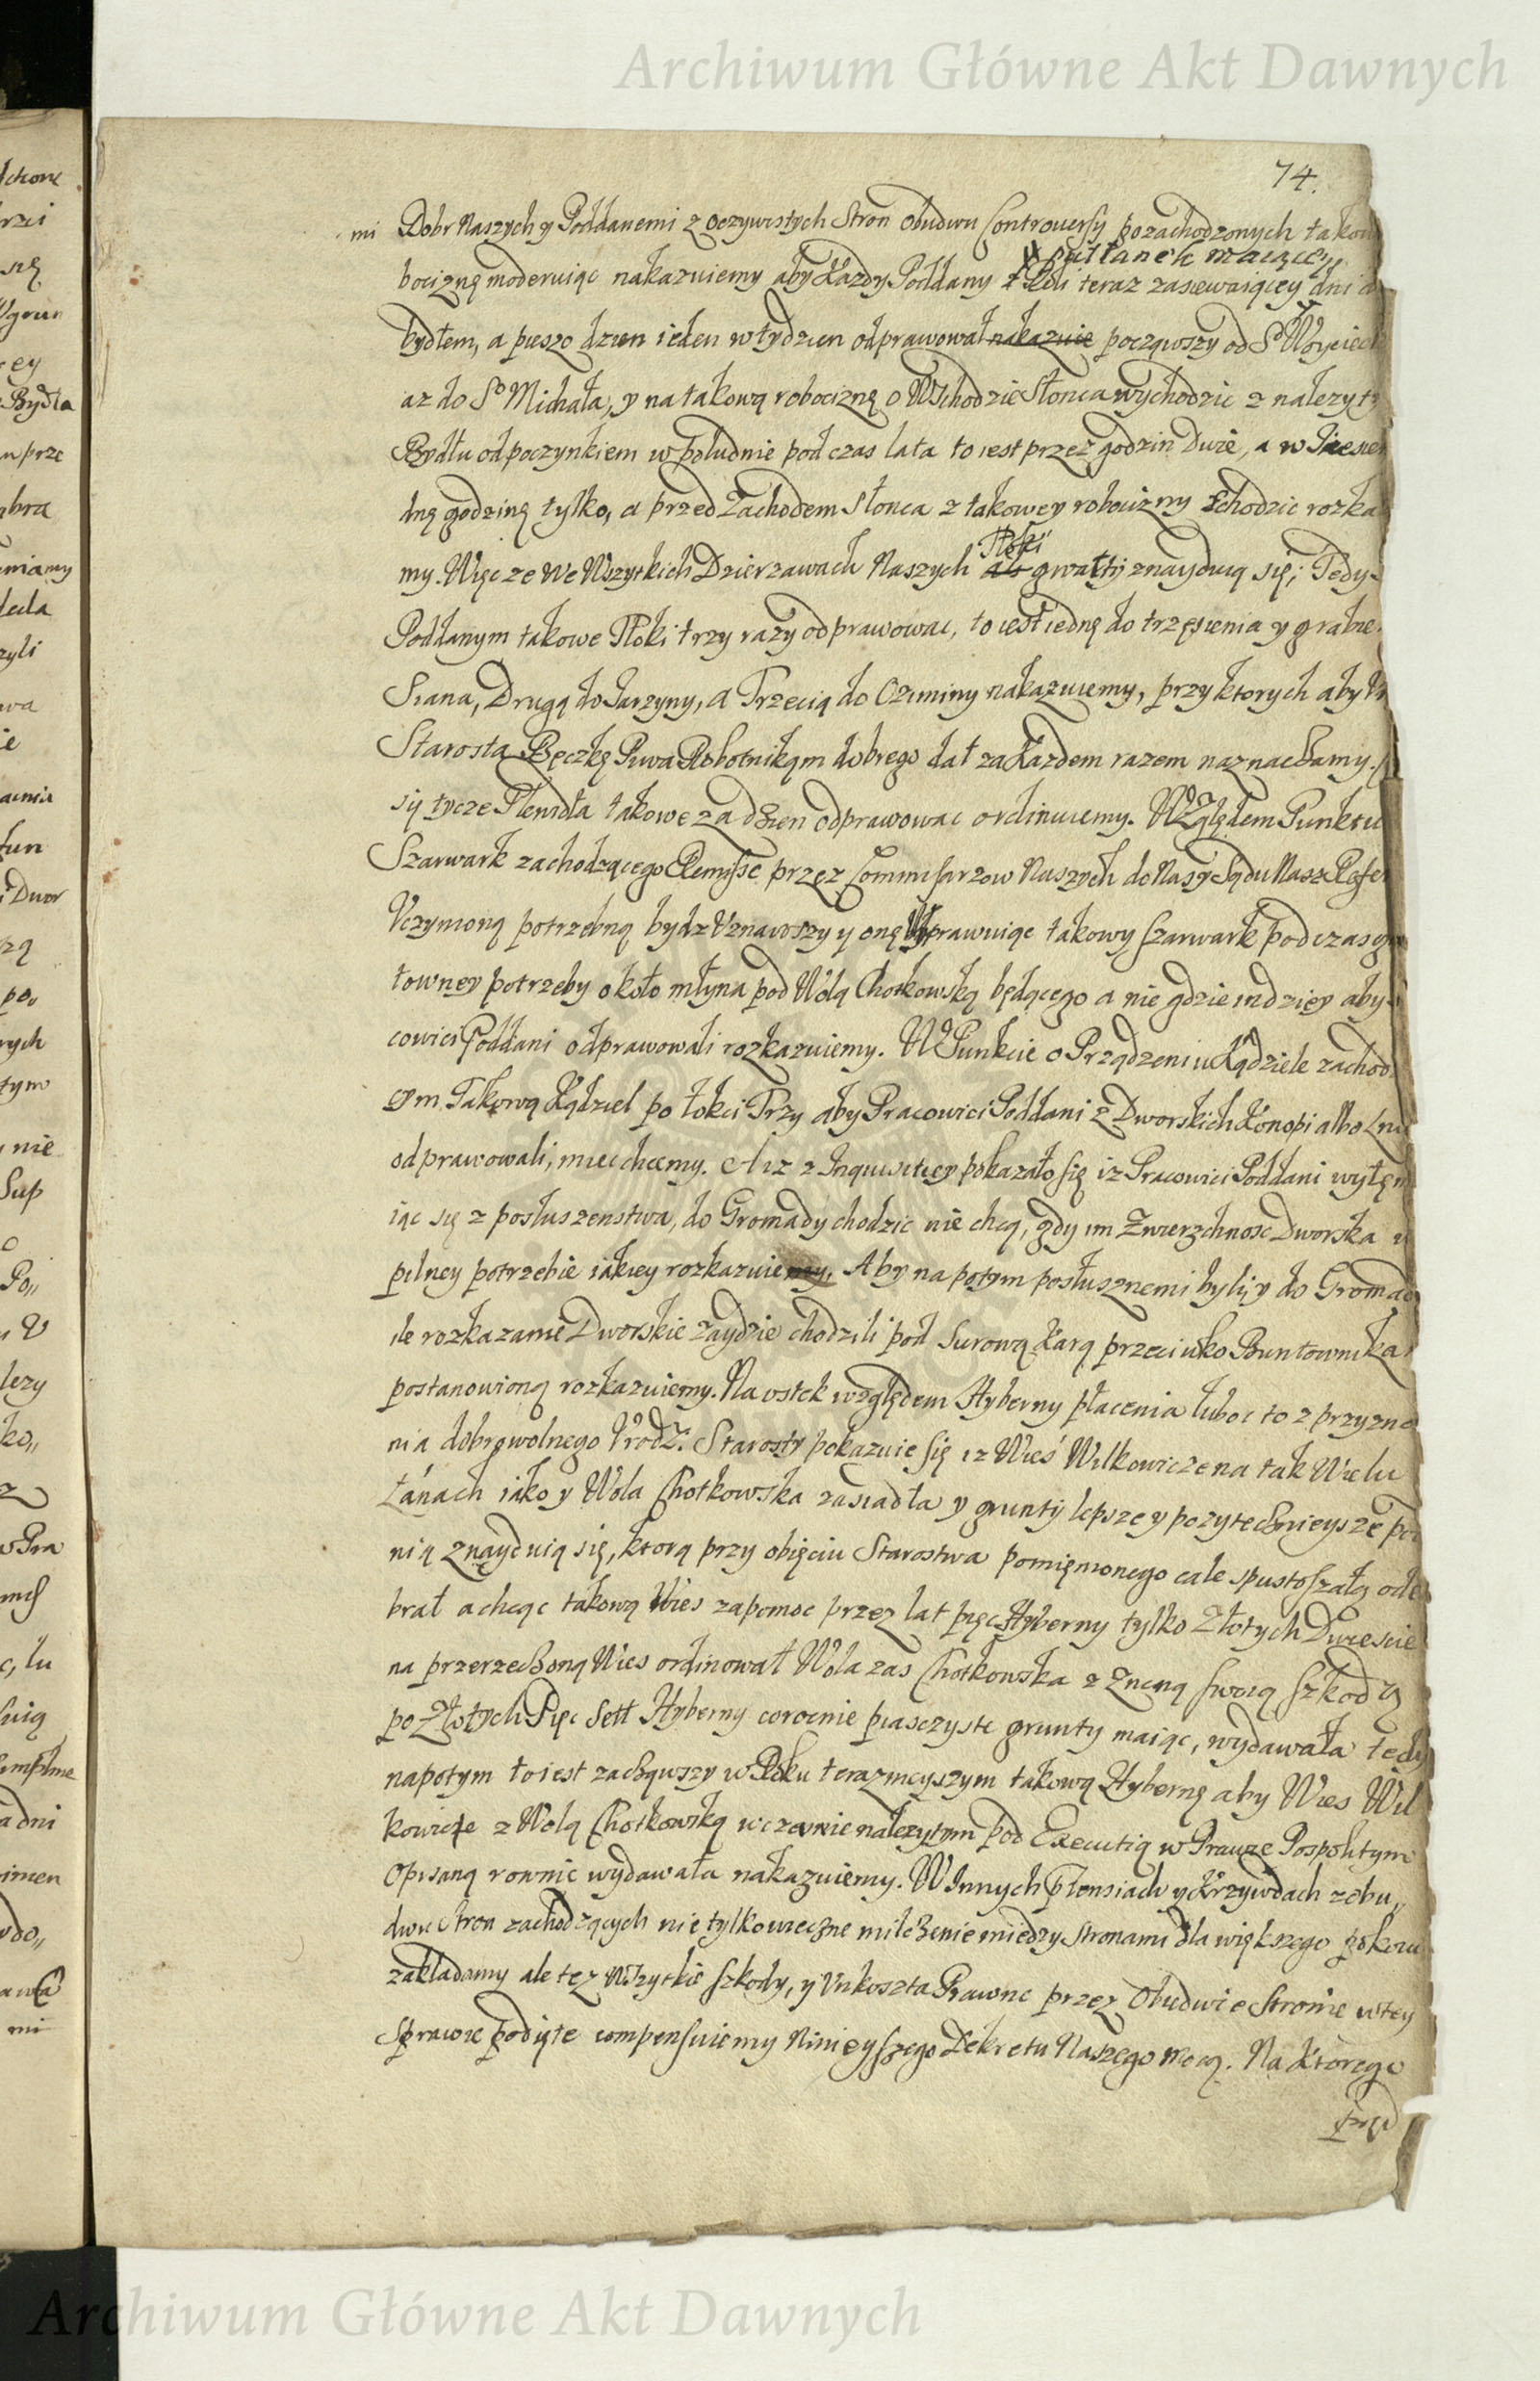 Archiwum Główne Akt Dawnych
74.
mi Dobr Naszych y Poddanemi z oczywistych Stron obudwu Controuersy pozachodzonych takow
pułłanek maiącey
bociznę moderuiąc nakazuiemy aby Kazdy Poddany z Roli teraz zasiewaiącey dni d
bydłem, a pieszo dzien ieden w tydzien odprawował nakazuie począwszy od So Woyciech
az do So Michała, y na takową robociznę o Wschodzie Słonca wychodzic z nalezyty
Bydłu odpoczynkiem w południe pod czas lata to iest przez godzin Dwie, a w Jesien
dnę godzinę tylko, a przed Zachodem Słonca z takowey robocizny schodzic rozka
Tłoki
my. Więc ze We Wszytkich Dzierzawach Naszych ab gwałty znayduią się; Tedy
Poddanym takowe Tłoki trzy razy odprawowac, to iest iednę do trzęsienia y grabie
Siana, Drugą do Jarzyny, a Trzecią do Oziminy nakazuiemy, przy ktorych aby V
Starosta Beczkę Piwa Robotnikom dobrego dał za Kazdem razem naznaczamy.
się tycze Plewidła takowe za dzien odprawowac ordinuiemy. Względem Punktu
Szarwark zachodzącego Remisse przez Commissarzow Naszych do Nas y Sądu Nasz Refer
Vczynioną potrzebną bydz Vznawszy y onę Vprawuiąc takowy szarwark podczas g
towney potrzeby około młyna pod Wolą Chotkowską będącego a nie gdzie indziey aby
cowici Poddani odprawowali rozkazuiemy. W Punkcie o Prządzeniu Kądziele zachod
cym Takową Kądziel po łokci Trzy aby Pracowici Poddani z Dworskich Konopi albo Lnu
odprawowali, miec chcemy. A iz z Inquisitiey pokazało się iz Pracowici Poddani wyłęm
iąc się z posłuszenstwa, do Gromady chodzic nie chcą, gdy im Zwierzchnosc Dworska w
pilney potrzebie iakiey rozkazuiemy, Aby na potym posłusznemi byli y do Gromad
ile rozkazanie Dworskie zaydzie chodzili pod surową Karą przeciwko Buntownika
postanowioną rozkazuiemy. Na ostek względem Hyberny płacenia luboc to z przyzna
nia dobrowolnego Vrodz. Starosty pokazuie się iz Wieś Wilkowicze na tak Wielu
Łánach iako y Wola Chotkowska zasiadła y grunty lepsze y pozytecznieysze pod
nią znayduią się, ktorą przy obięciu Starostwa pomięnionego cale spustoszałą ode
brał a chcąc takową Wies zapomoc przez lat pięc Hyberny tylko Złotych Dwiescie
na przerzeczoną Wies ordinował Wola zas Chotkowska z Zneną swoią szkodą
po Złotych Pięc Sett Hyberny corocnie piasczyste grunty maiąc, wydawała tedy
napotym to iest zacząwszy w Roku terazniejszym takową Hybernę aby Wies Wil
kowicze z Wolą Chotkowską w czasie nalezytym pod Executią w Prawie Pospolitym
Opisaną rownie wydawała nakazuiemy. W Innych Ptensiach y Krzywdach z obu,,
dwu stron zachodzących nie tylko wieczne milczenie miedzy Stronami dla większego pokoiu
zakładamy ale tez Wszytkie szkody, y Vnkoszta Prawne przez Obudwie Stronie w tey
Sprawie podięte compensuiemy Ninieyszego Dekretu Naszego mocą. Na Ktorego
Archiwum Główne Akt Dawnych